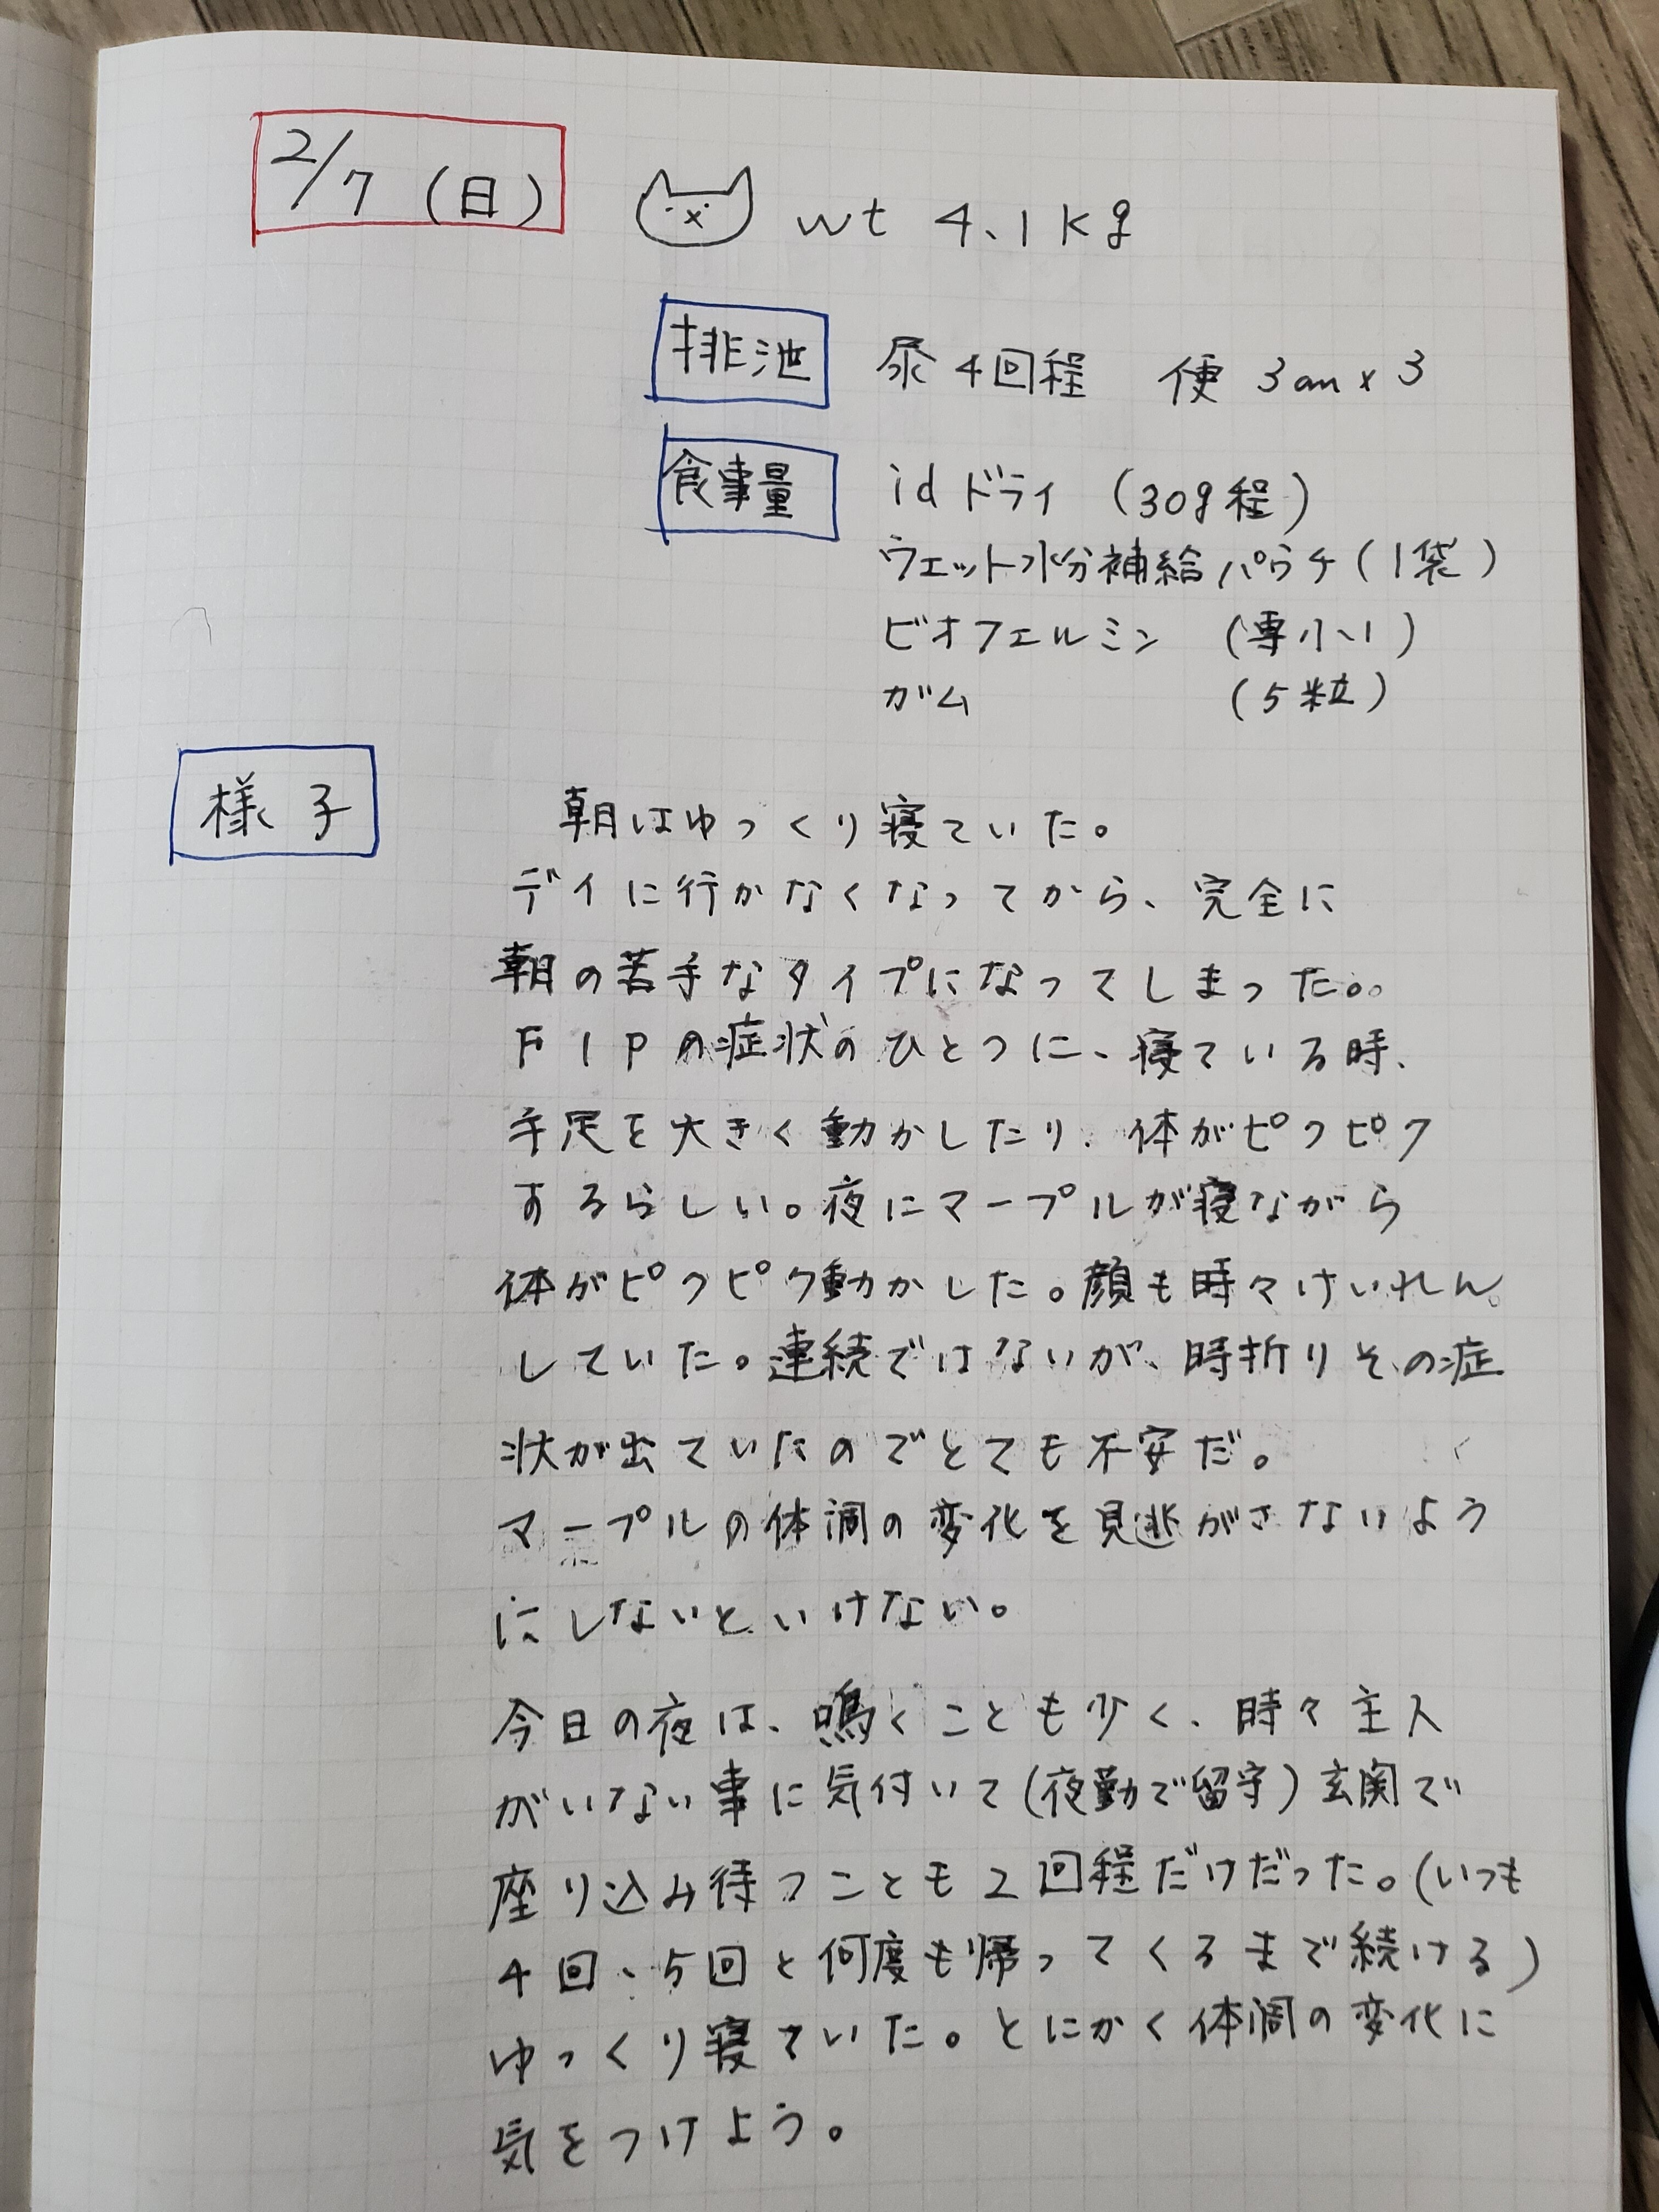 2/7 (日) wt 4.1kg
排泄 尿4回程 便3cm×3
食事量 idドライ (30g程)
ウェット水分補給パウチ(1袋)
ビオフェルミン (専小1)
ガム (5粒)
様子 朝はゆっくり寝ていた。
デイに行かなくなってから、完全に
朝の苦手なタイプになってしまった。。
FIPの症状のひとつに、寝ている時、
手足を大きく動かしたり、体がピクピク
するらしい。夜にマープルが寝ながら
体がピクピク動かした。顔も時々けいれん
していた。連続ではないが、時折りその症
状が出ていたのでとても不安だ。
マープルの体調の変化を見逃がさないよう
にしないといけない。
今日の夜は、鳴くことも少く、時々主人
がいない事に気付いて(夜勤で留守)玄関で
座り込み待つことも2回程だけだった。(いつも
4回、5回と何度も帰ってくるまで続ける)
ゆっくり寝ていた。とにかく体調の変化に
気をつけよう。